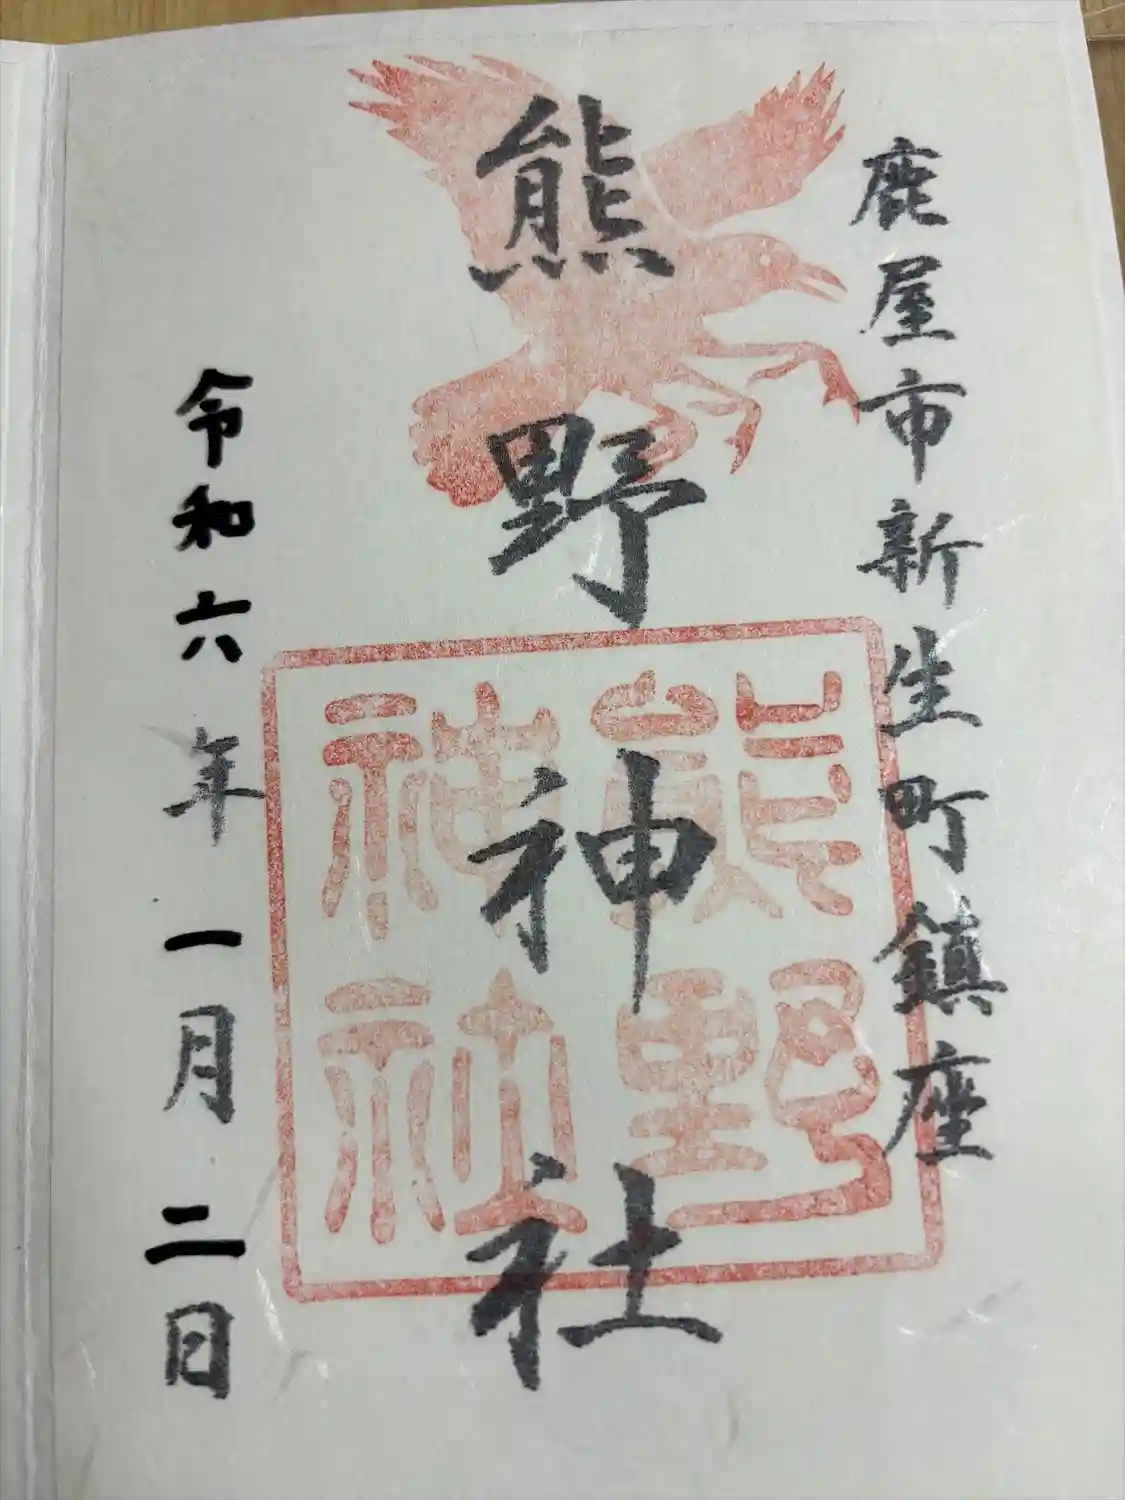 鹿屋市新生町鎮座
熊野神社
熊野
神社
令和六年一月二日